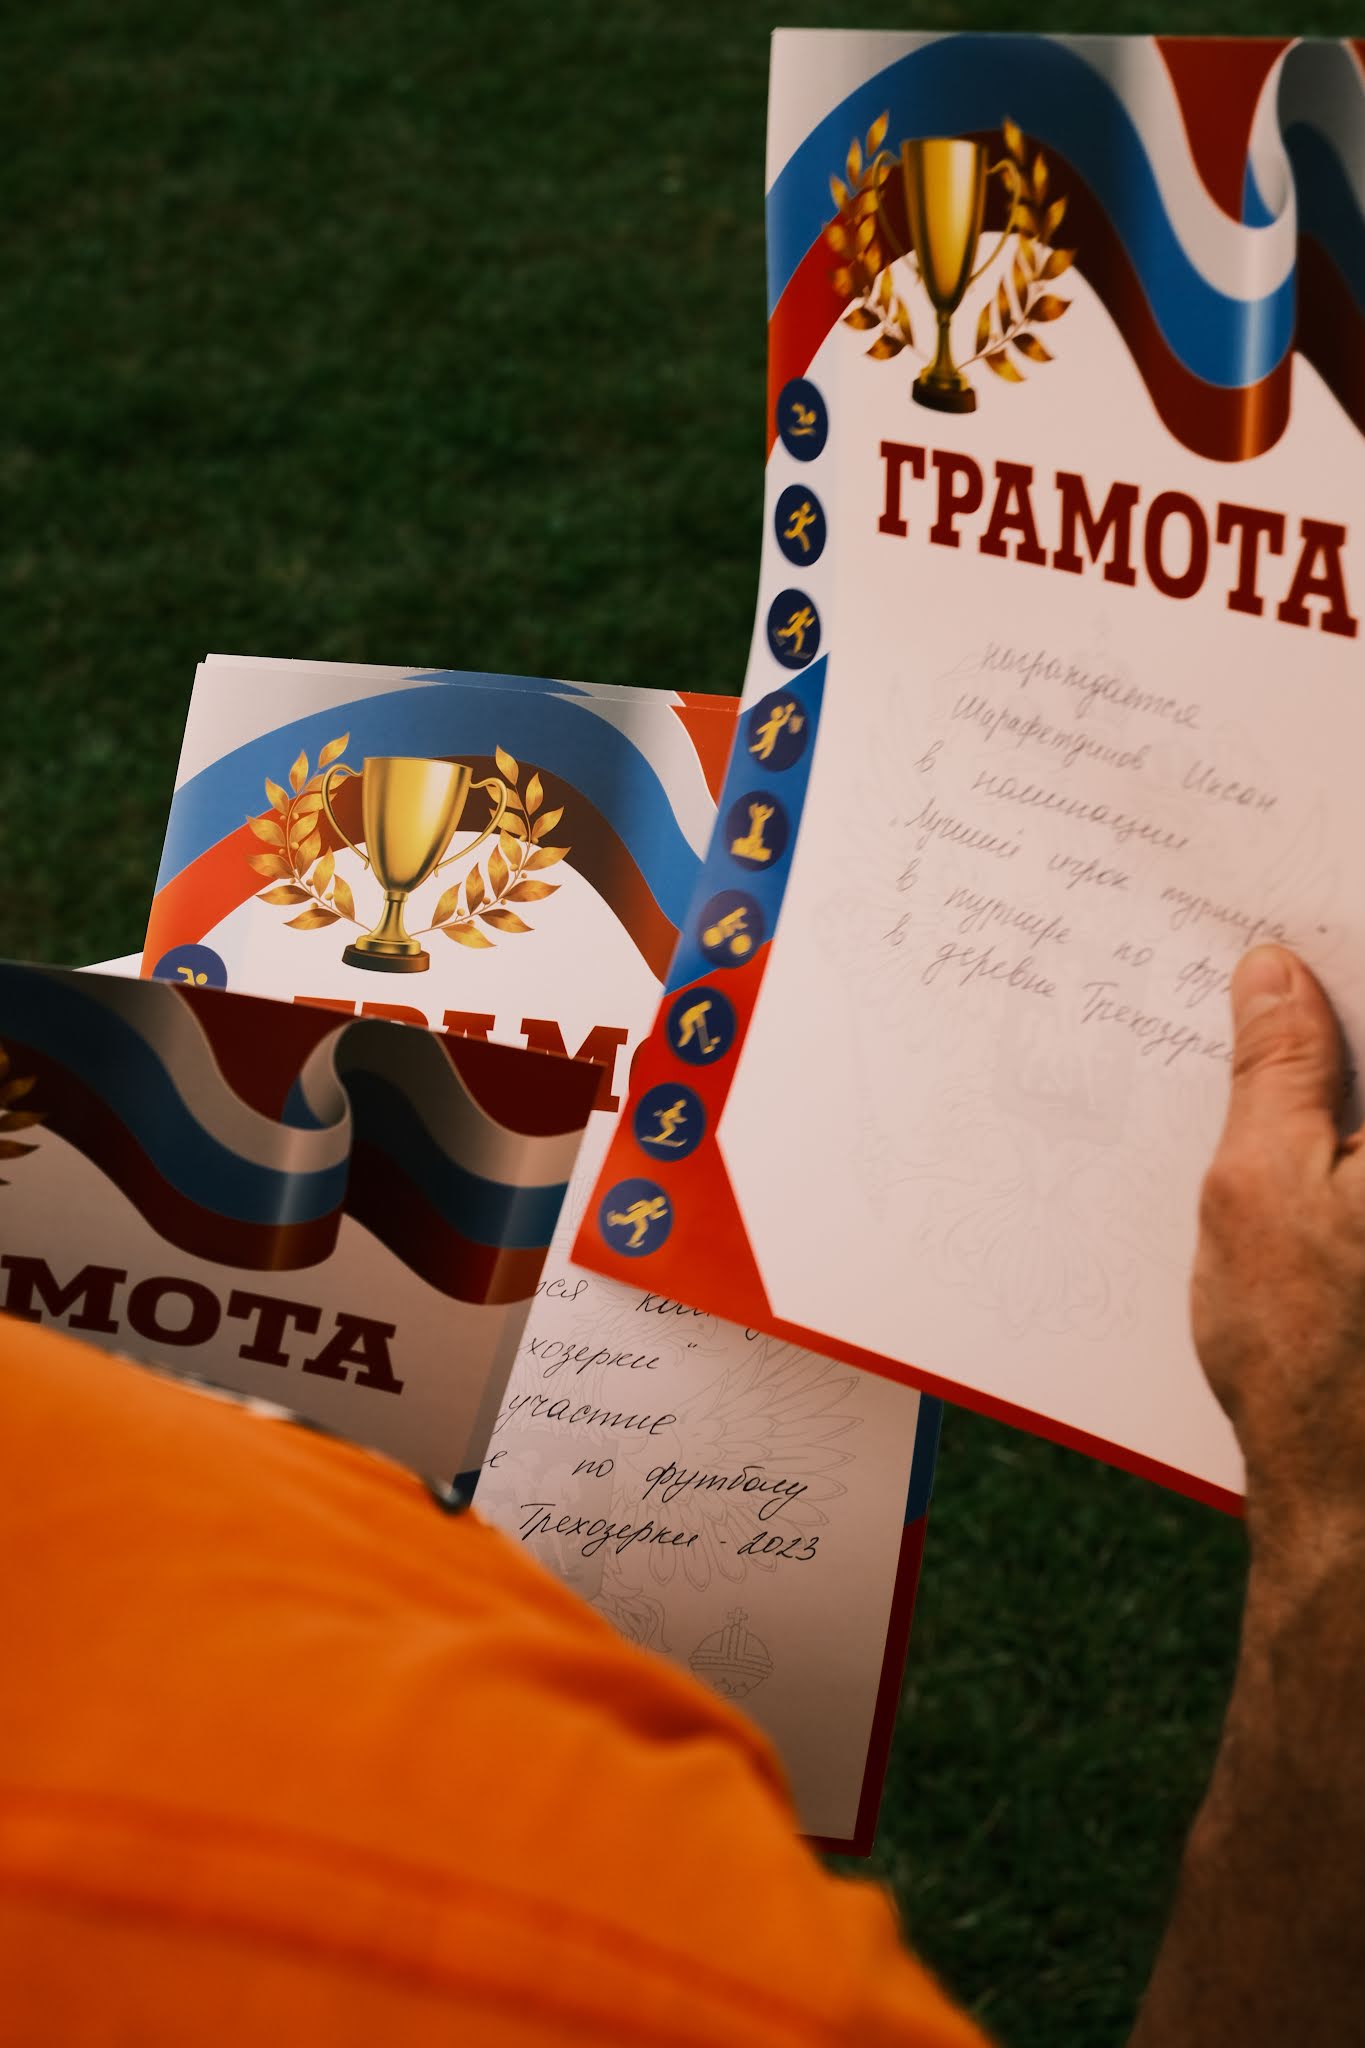 ГРАМОТА
награждается
Шарафетдинов Иксан
в номинации
„Лучший игрок турнира"
в турнире по фу
в деревне Трехозерки
ГРАМ
МОТА
хозерки"
участие
е по футболу
Трехозерки - 2023